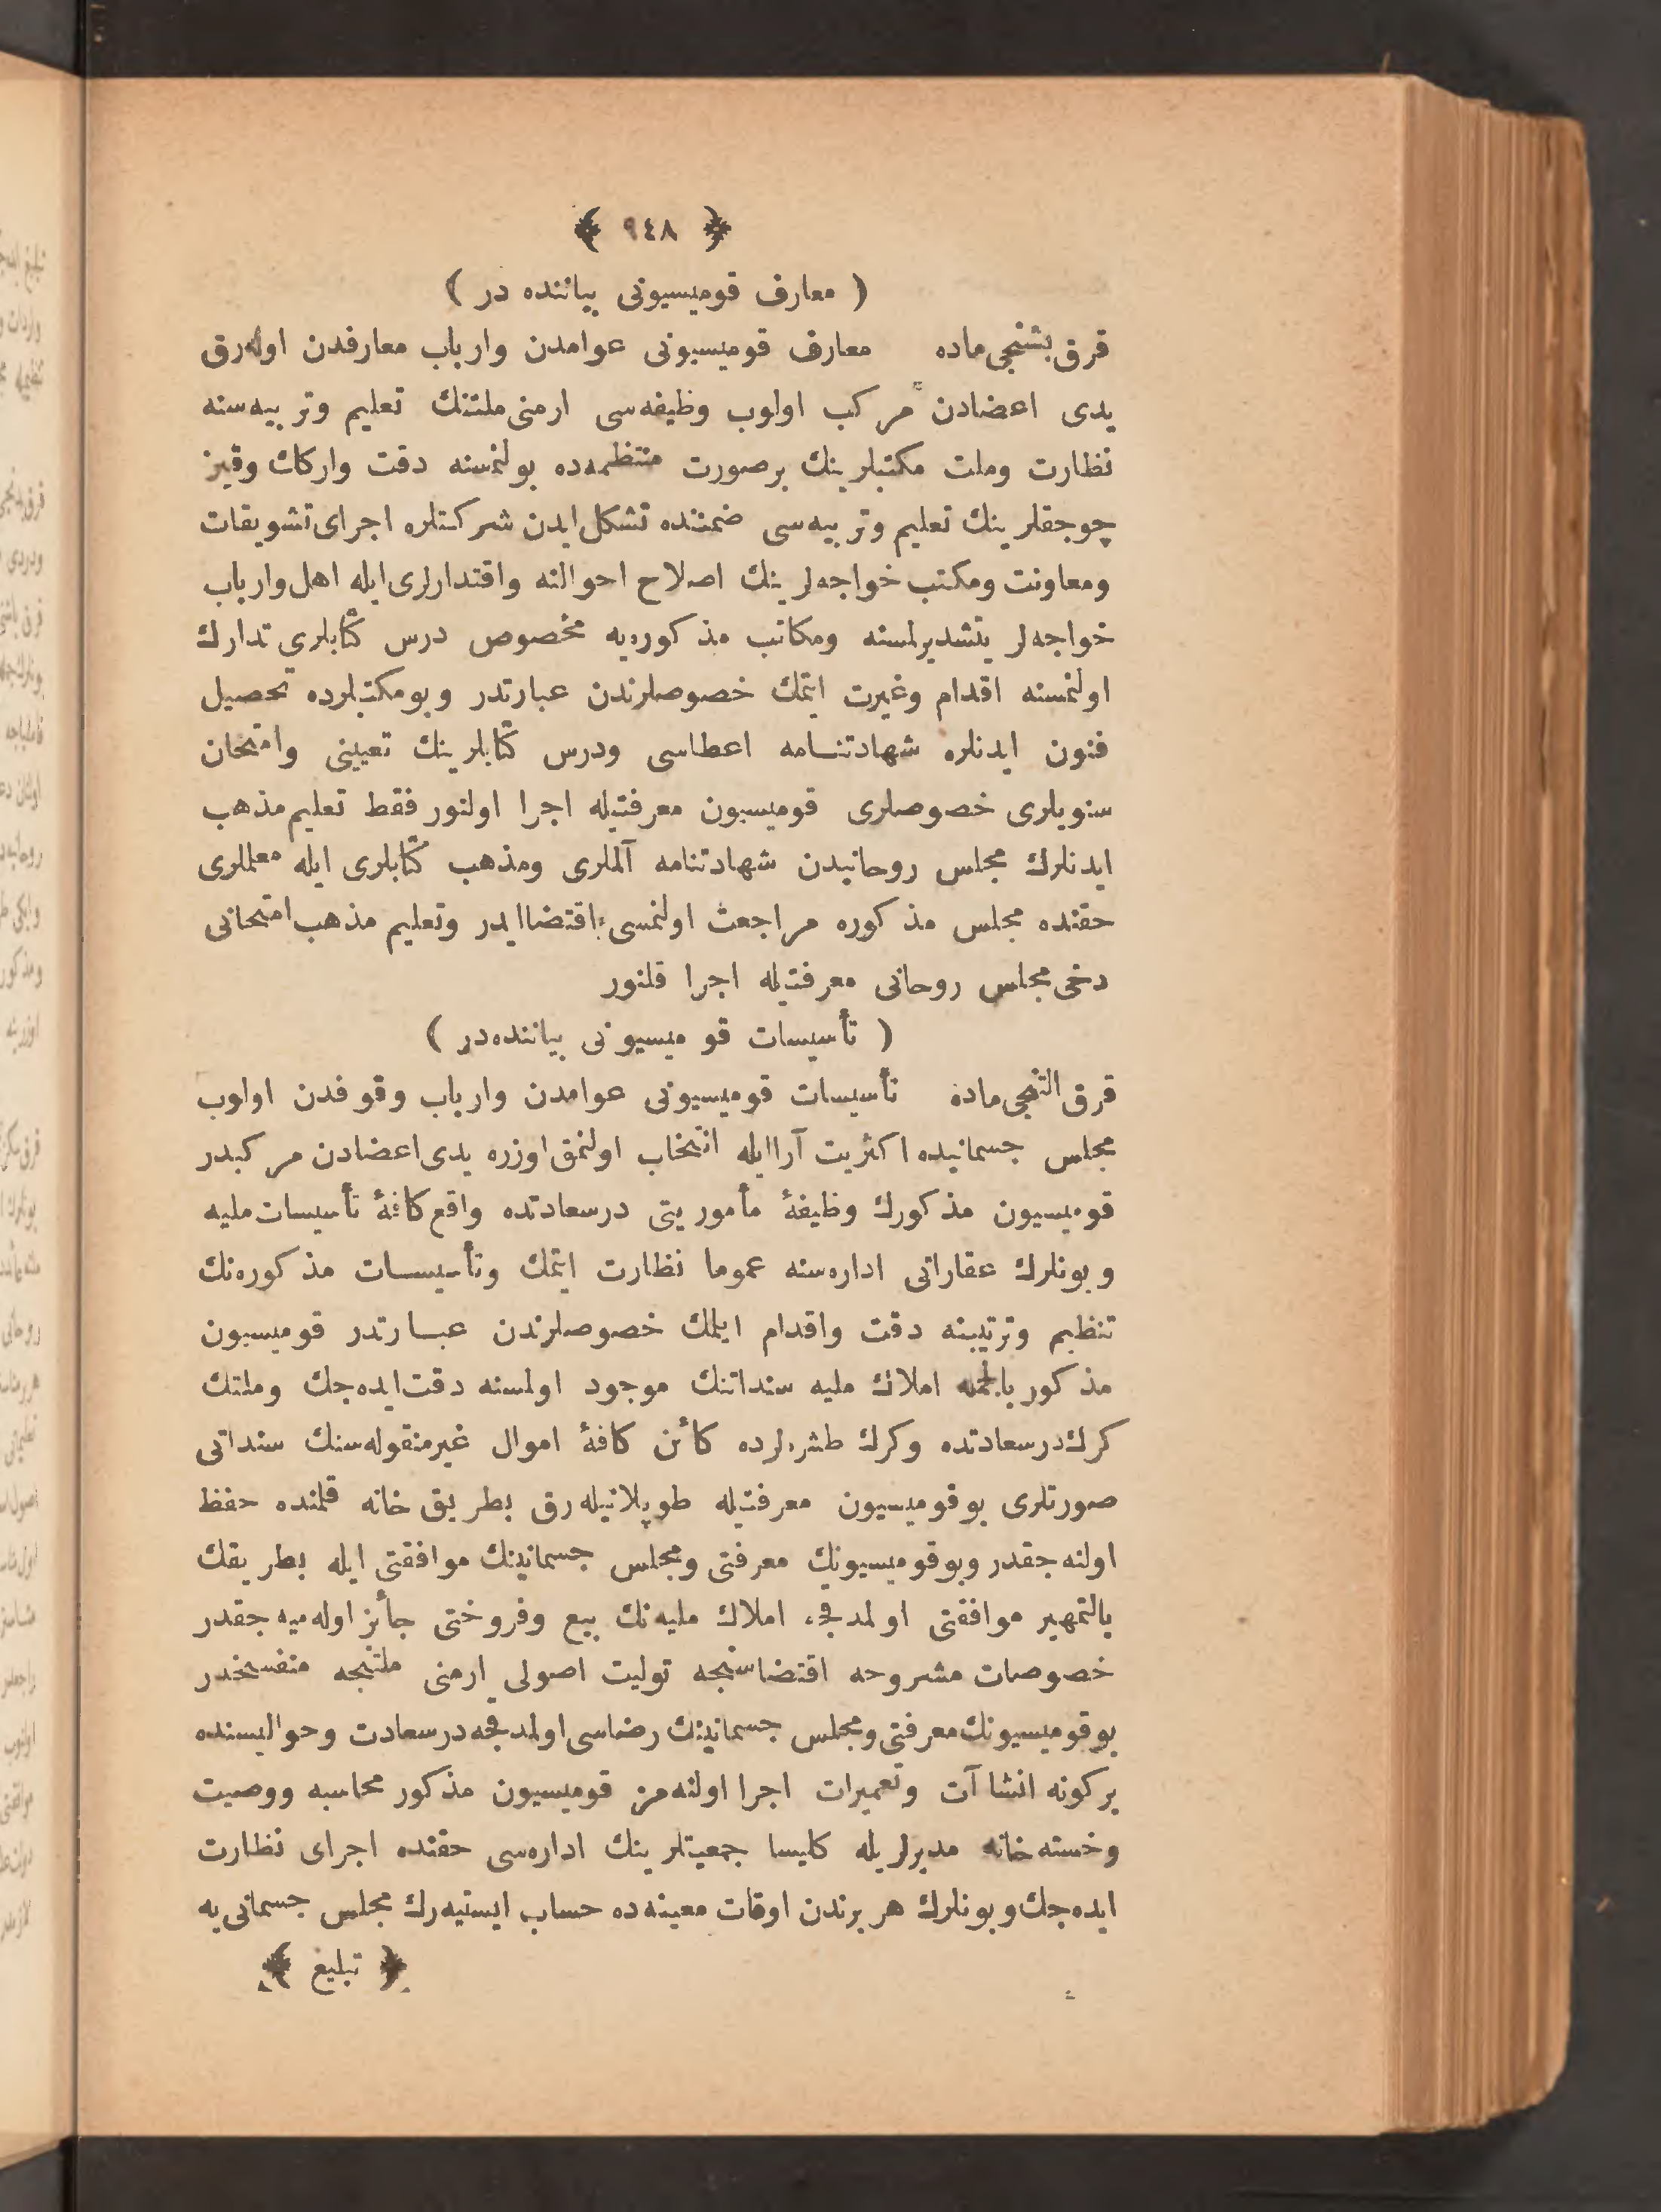 ﴿ ٩٤٨ ﴾
( معارف قومیسیونی بیاننده در )
قرق بشنجی ماده معارف قومیسیونی عوامدن وارباب معارفدن اوله رق
یدی اعضادن مرکب اولوب وظیفه سی ارمنی ملتنك تعلیم وتربیه سنه
نظارت وملت مکتبلرینك برصورت منتظمه ده بولنمسنه دقت وارکك وقیز
چوجقلرینك تعلیم وتربیه سی ضمننده تشکل ایدن شرکتلره اجرای تشویقات
ومعاونت ومکتب خواجه لرینك اصلاح احوالنه واقتدارلری ایله اهل وارباب
خواجه لر یتشدیرلمسنه ومکاتب مذکوره یه مخصوص درس کتابلری تدارك
اولنمسنه اقدام وغیرت ایتمك خصوصلرندن عبارتدر وبومکتبلرده تحصیل
فنون ایدنلره شهادتنامه اعطاسی ودرس کتابلرینك تعیینی وامتحان
سنویلری خصوصلری قومیسیون معرفتیله اجرا اولنور فقط تعلیم مذهب
ایدنلرك مجلس روحانیدن شهادتنامه آلملری ومذهب کتابلری ایله معلملری
حقنده مجلس مذکوره مراجعت اولنمسی اقتضا ایدر وتعلیم مذهب امتحانی
دخی مجلس روحانی معرفتیله اجرا قلنور
( تأسیسات قومیسیونی بیاننده در )
قرق التنجی ماده تأسیسات قومیسیونی عوامدن وارباب وقوفدن اولوب
مجلس جسمانیده اکثریت آرا ایله انتخاب اولنمق اوزره یدی اعضادن مرکبدر
قومیسیون مذکورك وظیفهٔ مأموریتی درسعادتده واقع کافهٔ تأسیسات ملیه
وبونلرك عقاراتی اداره سنه عموما نظارت ایتمك وتأسیسات مذکوره نك
تنظیم وترتیبنه دقت واقدام ایلمك خصوصلرندن عبارتدر قومیسیون
مذکور بالجمله املاك ملیه سنداتنك موجود اولمسنه دقت ایده جك وملتك
کرك درسعادتده وکرك طشره لرده کائن کافهٔ اموال غیرمنقوله سنك سنداتی
صورتلری بوقومیسیون معرفتیله طوپلانیله رق بطریق خانه قلمنده حفظ
اولنه جقدر وبوقومیسیونك معرفتی ومجلس جسمانینك موافقتی ایله بطریقك
بالتمهیر موافقتی اولمدقجه املاك ملیه نك بیع وفروختی جائز اوله میه جقدر
خصوصات مشروحه اقتضاسنجه تولیت اصولی ارمنی ملتنجه منفسخدر
بوقومیسیونك معرفتی ومجلس جسمانینك رضاسی اولمدقجه درسعادت وحوالیسنده
برکونه انشاآت وتعمیرات اجرا اولنه مز قومیسیون مذکور محاسبه ووصیت
وخسته خانه مدیرلریله کلیسا جمعیتلرینك اداره سی حقنده اجرای نظارت
ایده جك وبونلرك هر برندن اوقات معینه ده حساب ایستیه رك مجلس جسمانی یه
﴿ تبلیغ ﴾